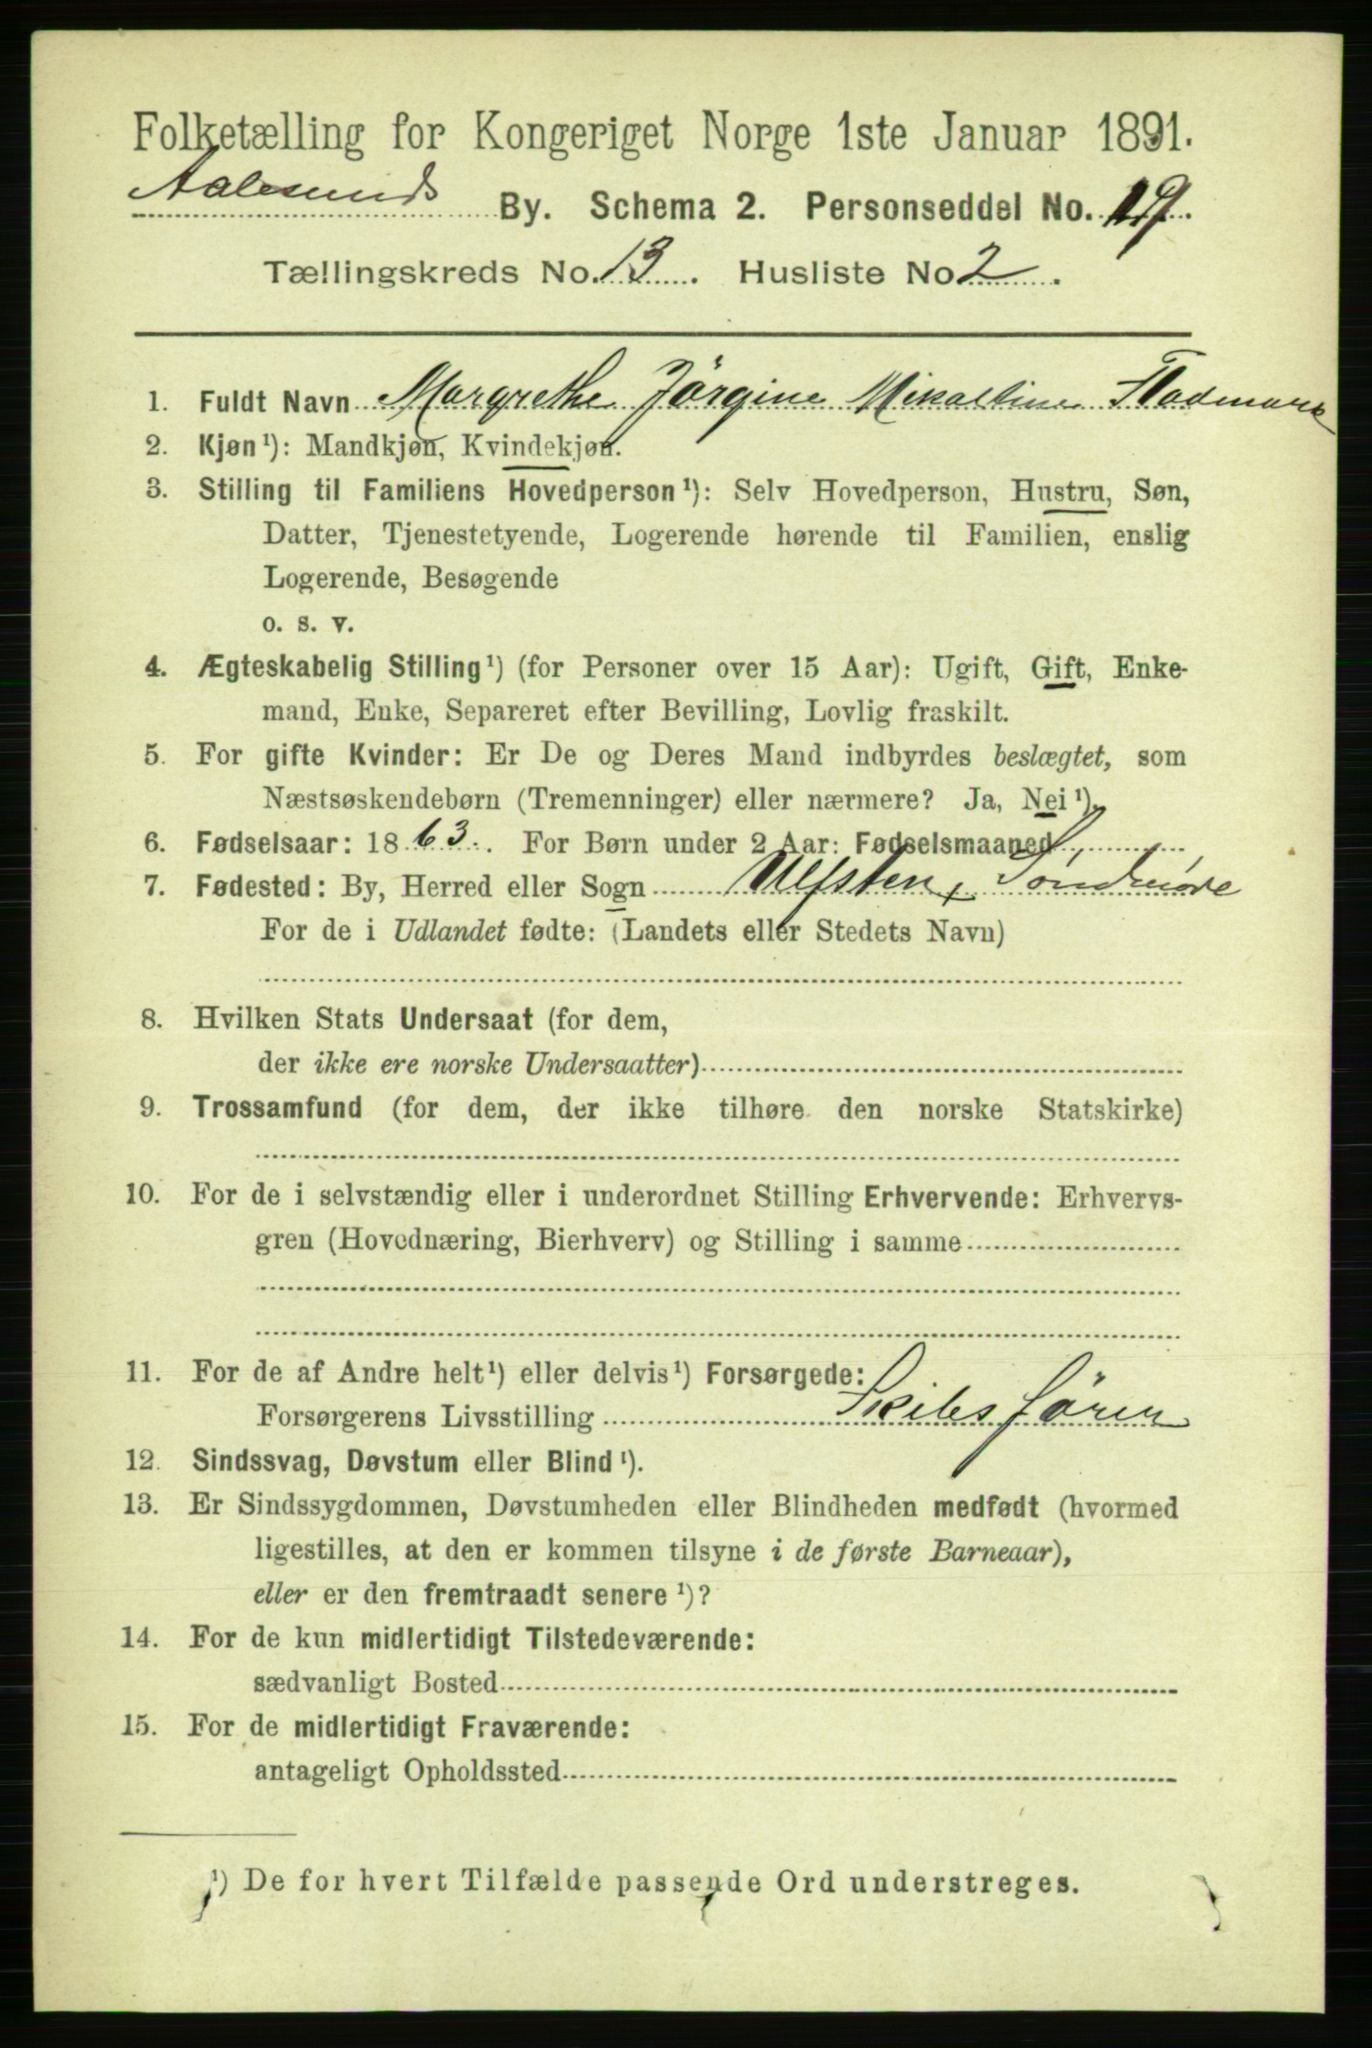 Folketælling for Kongeriget Norge 1ste Januar 1891.
Aalesunds By. Schema 2. Personseddel No. 19.
Tællingskreds No. 13. Husliste No 2.
1. Fuldt Navn Margrethe Jörgine Mikaeline Stadmark
2. Kjøn¹): Mandkjøn, Kvindekjøn.
3. Stilling til Familiens Hovedperson¹): Selv Hovedperson, Hustru, Søn,
Datter, Tjenestetyende, Logerende hørende til Familien, enslig
Logerende, Besøgende
o. s. v.
4. Ægteskabelig Stilling¹) (for Personer over 15 Aar): Ugift, Gift, Enke-
mand, Enke, Separeret efter Bevilling, Lovlig fraskilt.
5. For gifte Kvinder: Er De og Deres Mand indbyrdes beslægtet, som
Næstsøskendebørn (Tremenninger) eller nærmere? Ja, Nei¹).
6. Fødselsaar: 1863. For Børn under 2 Aar: Fødselsmaaned
7. Fødested: By, Herred eller Sogn Ulfsten, Söndmöre
For de i Udlandet fødte: (Landets eller Stedets Navn)
8. Hvilken Stats Undersaat (for dem,
der ikke ere norske Undersaatter)
9. Trossamfund (for dem, der ikke tilhøre den norske Statskirke)
10. For de i selvstændig eller i underordnet Stilling Erhvervende: Erhvervs-
gren (Hovednæring, Bierhverv) og Stilling i samme
11. For de af Andre helt¹) eller delvis¹) Forsørgede:
Forsørgerens Livsstilling Skibsförer
12. Sindssvag, Døvstum eller Blind¹).
13. Er Sindssygdommen, Døvstumheden eller Blindheden medfødt (hvormed
ligestilles, at den er kommen tilsyne i de første Barneaar),
eller er den fremtraadt senere¹)?
14. For de kun midlertidigt Tilstedeværende:
sædvanligt Bosted
15. For de midlertidigt Fraværende:
antageligt Opholdssted
¹) De for hvert Tilfælde passende Ord understreges.